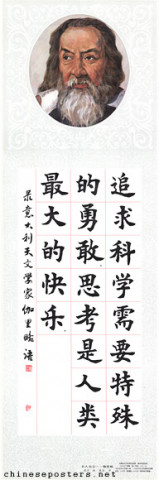 追求科学需要特殊
的勇敢，思考是人类
最大的快乐。
录意大利天文学家伽里略语
chineseposters.net